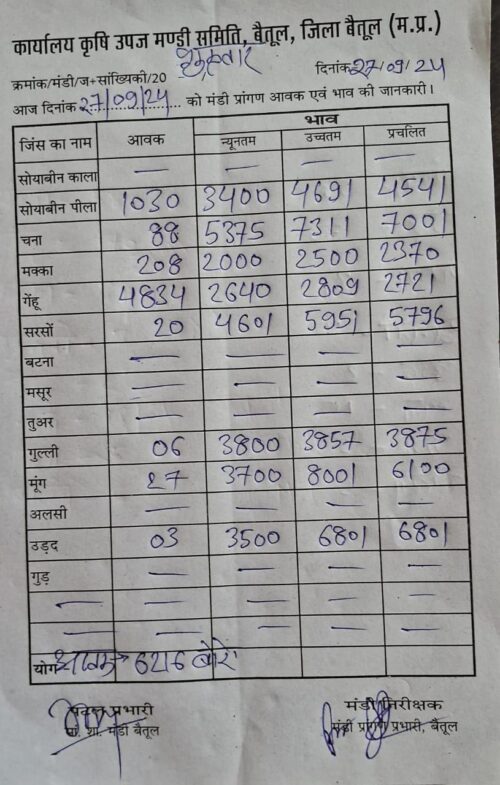 कार्यालय कृषि उपज मण्डी समिति, बैतूल, जिला बैतूल (म.प्र.)
शुक्रवार
क्रमांक/मंडी/ज+सांख्यिकी/20 दिनांक 27/09/24
आज दिनांक 27/09/24 को मंडी प्रांगण आवक एवं भाव की जानकारी।
जिंस का नाम आवक भाव
न्यूनतम उच्चतम प्रचलित
सोयाबीन काला — — — —
सोयाबीन पीला 1030 3400 4691 4541
चना 88 5375 7311 7001
मक्का 208 2000 2500 2370
गेंहू 4834 2640 2809 2721
सरसों 20 4601 5951 5796
बटना — — — —
मसूर — — — —
तुअर — — — —
गुल्ली 06 3800 3857 3875
मूंग 27 3700 8001 6100
अलसी — — — —
उड़द 03 3500 6801 6801
गुड़ — — — —
— — — — —
— — — — —
योग 6216 बोरे
प्रभारी मंडी निरीक्षक
मंडी बैतूल मंडी प्रांगण प्रभारी, बैतूल